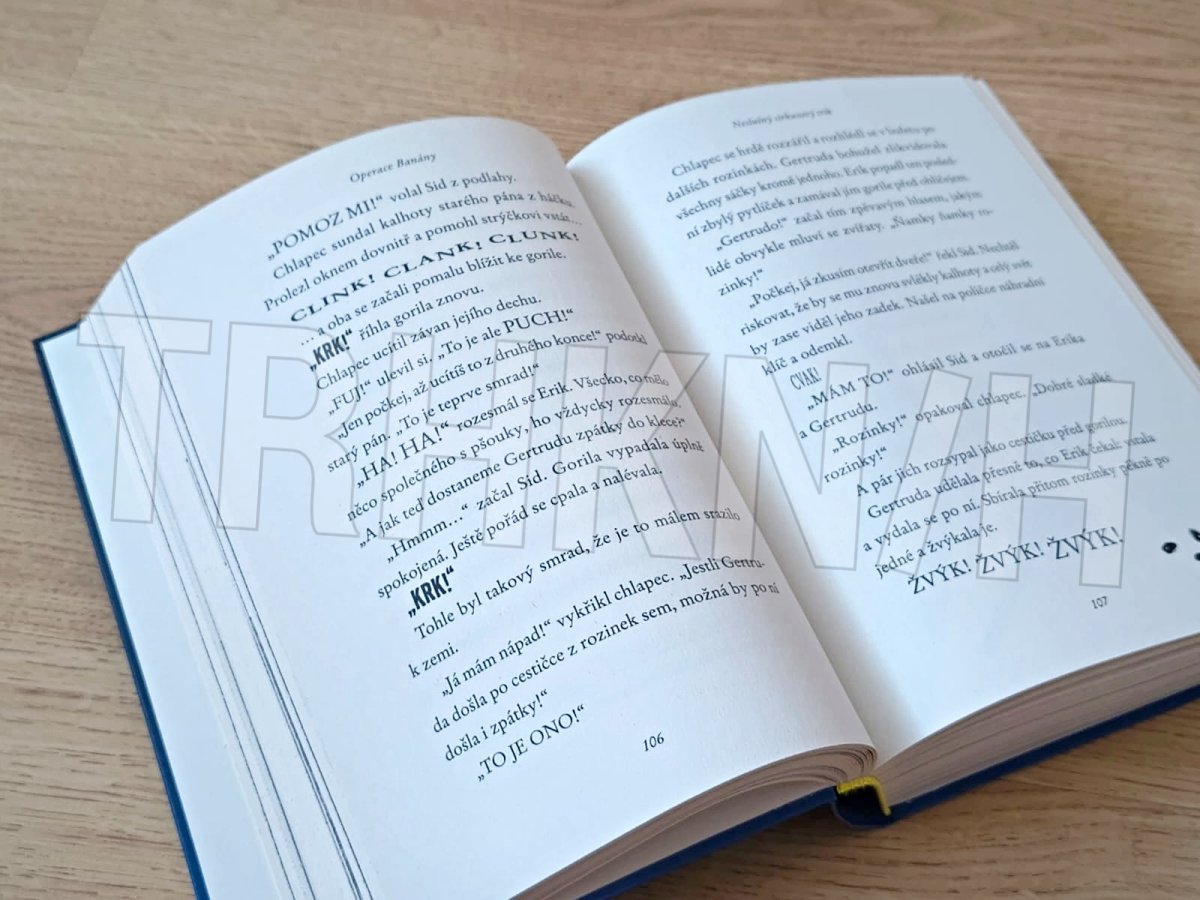 Operace Banány
„POMOZ MI!“ volal Sid z podlahy.
Chlapec sundal kalhoty starého pána z háčku.
Prolezl oknem dovnitř a pomohl strýčkovi vstát…
CLINK! CLANK! CLUNK!
… a oba se začali pomalu blížit ke gorile.
„KRK!“ říhla gorila znovu.
Chlapec ucítil závan jejího dechu.
„FUJ!“ ulevil si. „To je ale PUCH!“
„Jen počkej, až ucítíš to z druhého konce!“ podotkl
starý pán. „To je teprve smrad!“
„HA! HA!“ rozesmál se Erik. Všecko, co mělo
něco společného s pšouky, ho vždycky rozesmálo.
„A jak teď dostaneme Gertrudu zpátky do klece?“
„Hmmm…“ začal Sid. Gorila vypadala úplně
spokojená. Ještě pořád se cpala a nalévala.
„KRK!“
Tohle byl takový smrad, že je to málem srazilo
k zemi.
„Já mám nápad!“ vykřikl chlapec. „Jestli Gertru-
da došla po cestičce z rozinek sem, možná by po ní
došla i zpátky!“
„TO JE ONO!“
106
Chlapec se hrdě rozzářil a rozhlédl se v bufetu po
dalších rozinkách. Gertruda bohužel zlikvidovala
všechny sáčky kromě jednoho. Erik popadl ten posled-
ní zbylý pytlíček a zamával jím gorile před obličejem.
„Gertrudo!“ začal tím zpěvavým hlasem, jakým
lidé obvykle mluví se zvířaty. „Ňamky ňamky ro-
zinky!“
„Počkej, já zkusím otevřít dveře!“ řekl Sid. Nechtěl
riskovat, že by se mu znovu svlékly kalhoty a celý svět
by zase viděl jeho zadek. Našel na poličce náhradní
klíč a odemkl.
CVAK!
„MÁM TO!“ ohlásil Sid a otočil se na Erika
a Gertrudu.
„Rozinky!“ opakoval chlapec. „Dobré sladké
rozinky!“
A pár jich rozsypal jako cestičku před gorilou.
Gertruda udělala přesně to, co Erik čekal: vstala
a vydala se po ní. Sbírala přitom rozinky pěkně po
jedné a žvýkala je.
ŽVÝK! ŽVÝK! ŽVÝK!
107